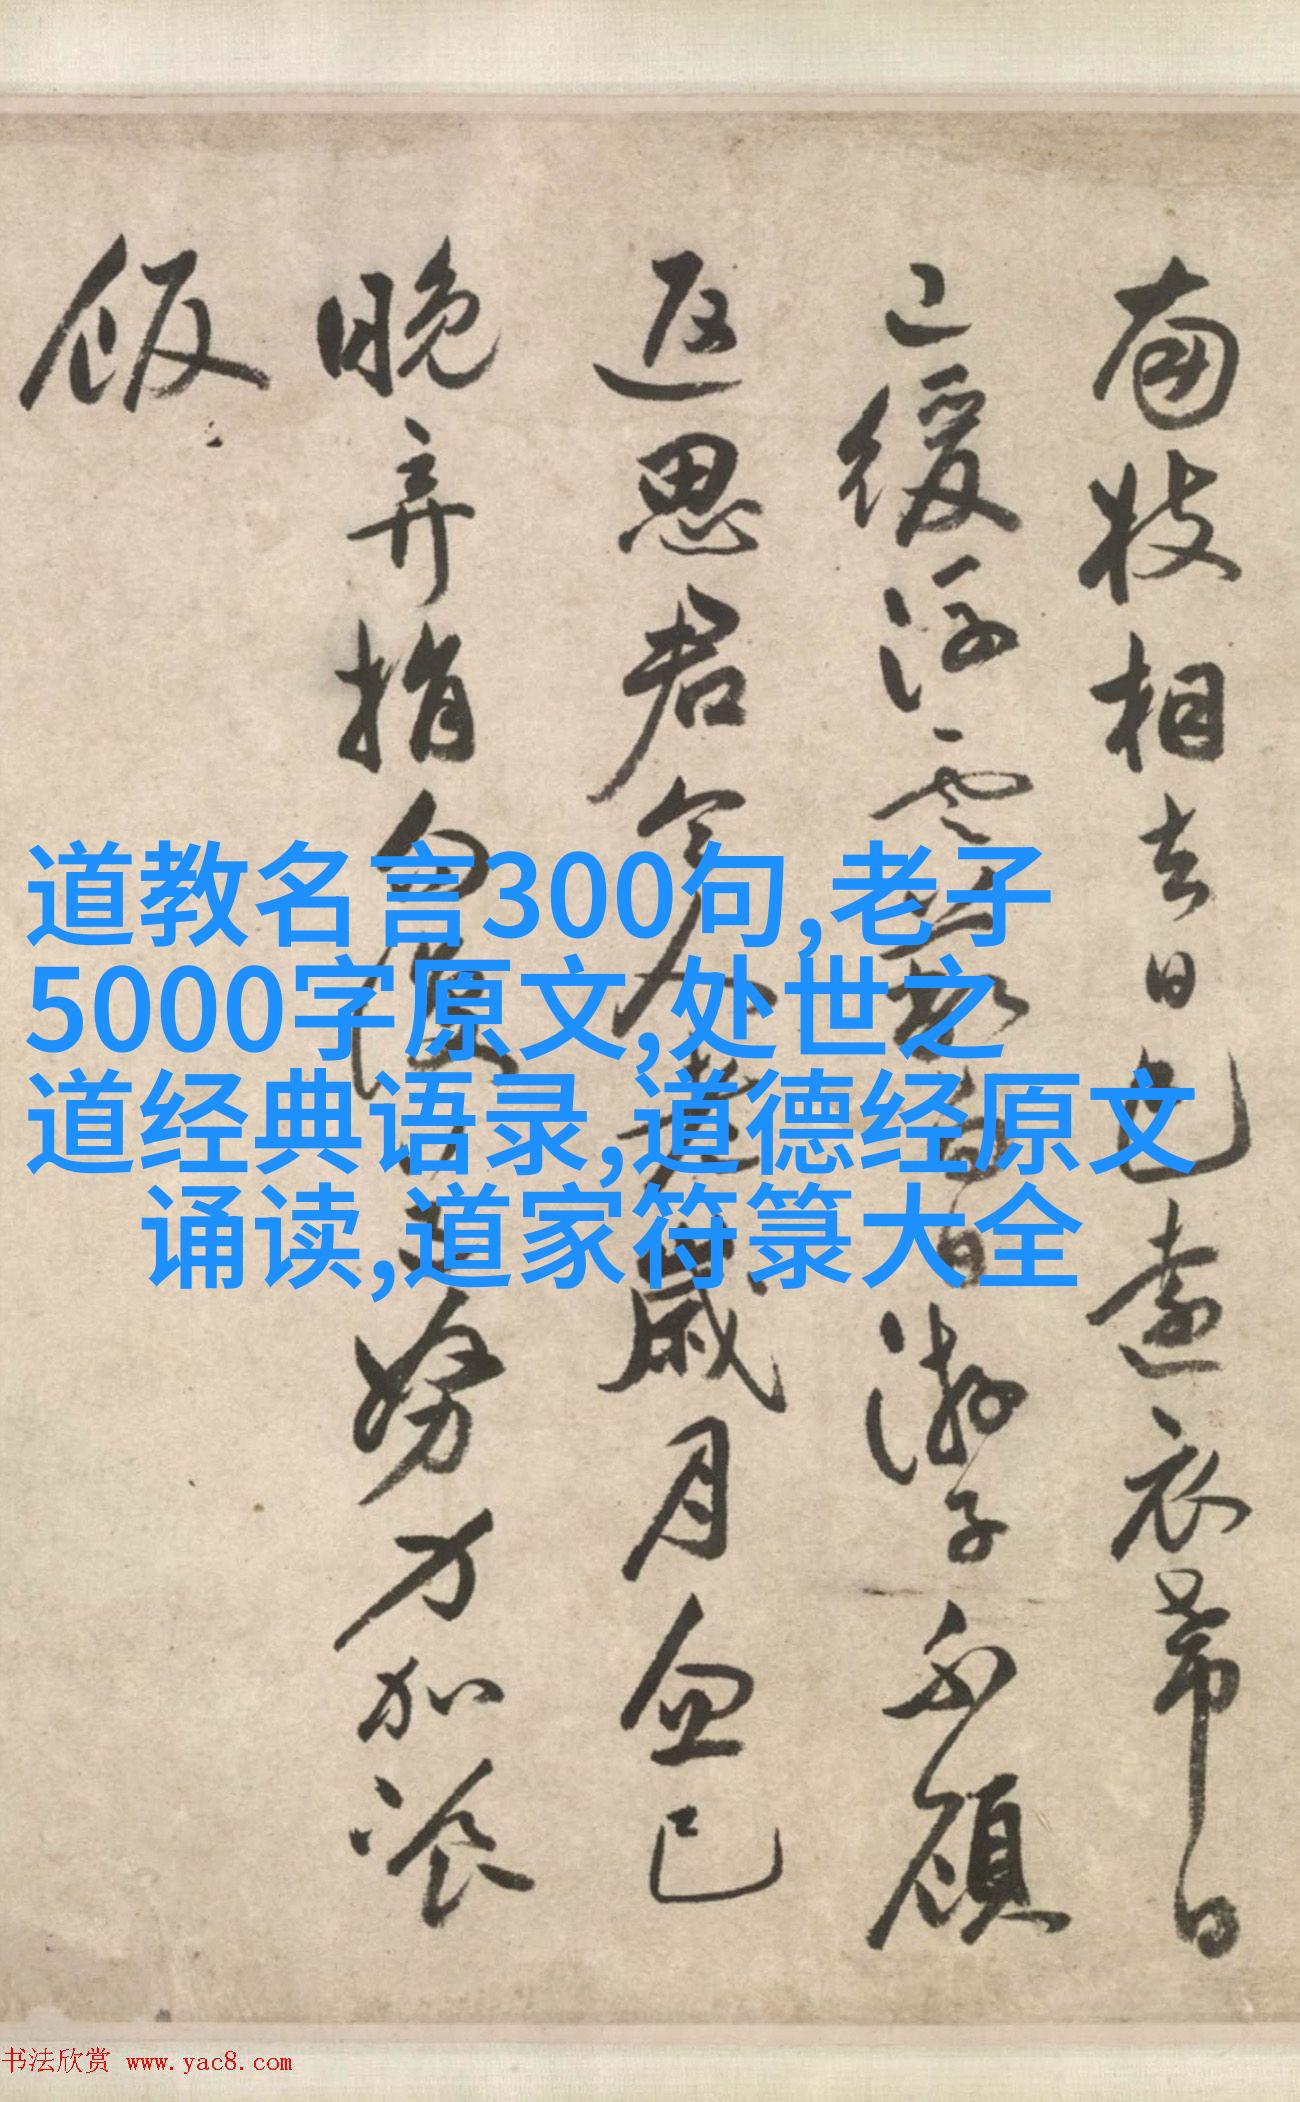 南枝相去日已遠衣帶日
已緩浮雲蔽白日游子不顧
返思君令人老歲月已
晚弃捐勿復道努力加飡
飯
道教名言300句,老子
5000字原文,处世之
道经典语录,道德经原文
诵读,道家符箓大全
书法欣赏 www.yac8.com